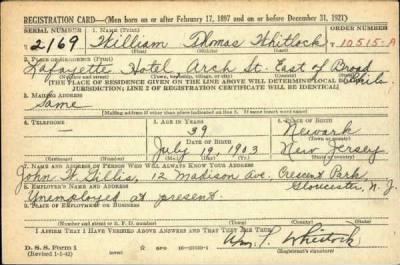 REGISTRATION CARD—(Men born on or after February 17, 1897 and on or before December 31, 1921)
SERIAL NUMBER 1. NAME (Print) ORDER NUMBER
T 2169 William Thomas Whitlock T 10515-A
(First) (Middle) (Last)
2. PLACE OF RESIDENCE (Print)
Lafayette Hotel Arch St. East of Broad Phila
(Number and street) (Town, township, village, or city) (County) (State)
[THE PLACE OF RESIDENCE GIVEN ON THE LINE ABOVE WILL DETERMINE LOCAL BOARD
JURISDICTION; LINE 2 OF REGISTRATION CERTIFICATE WILL BE IDENTICAL]
3. MAILING ADDRESS
Same
(Mailing address if other than place indicated on line 2. If same insert word same)
4. TELEPHONE 5. AGE IN YEARS 6. PLACE OF BIRTH
— 39 Newark
DATE OF BIRTH (Town or county)
July 19 1903 New Jersey
(Exchange) (Number) (Mo.) (Day) (Yr.) (State or country)
7. NAME AND ADDRESS OF PERSON WHO WILL ALWAYS KNOW YOUR ADDRESS
John W. Gillis, 12 Madison Ave. Crescent Park,
8. EMPLOYER'S NAME AND ADDRESS Gloucester, N.J.
Unemployed at present.
9. PLACE OF EMPLOYMENT OR BUSINESS
(Number and street or R. F. D. number) (Town) (County) (State)
I AFFIRM THAT I HAVE VERIFIED ABOVE ANSWERS AND THAT THEY ARE TRUE.
D. S. S. Form 1
(Revised 1-1-42) Wm. T. Whitlock
(Registrant's signature)